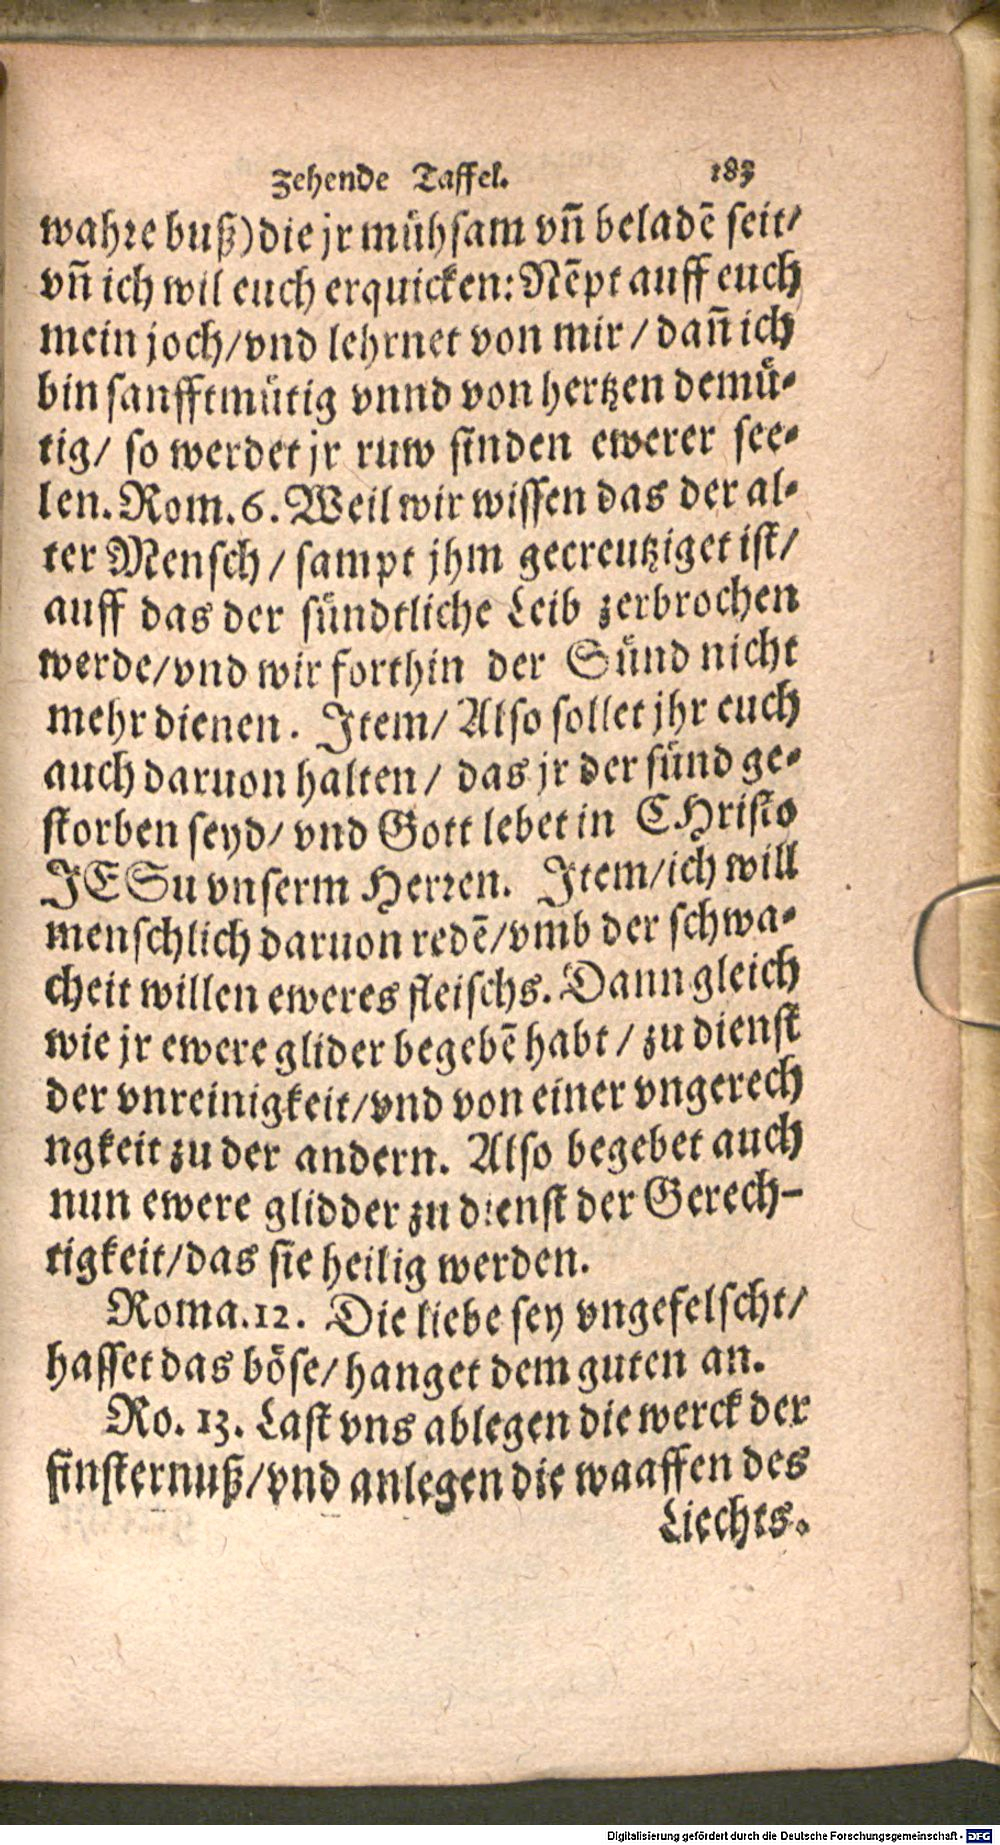 zehende Taffel. 183
wahre buß) die jr mühsam vn̄ beladē seit/
vn̄ ich wil euch erquicken: Nēpt auff euch
mein joch/vnd lehrnet von mir / dan̄ ich
bin sanfftmütig vnnd von hertzen demü-
tig/ so werdet jr ruw finden ewerer see-
len. Rom. 6. Weil wir wissen das der al-
ter Mensch / sampt jhm gecreutziget ist/
auff das der sündtliche Leib zerbrochen
werde/vnd wir forthin der Sünd nicht
mehr dienen. Item/ Also sollet jhr euch
auch daruon halten/ das jr der sünd ge-
storben seyd/ vnd Gott lebet in CHristo
JESu vnserm Herren. Item/ich will
menschlich daruon redē/vmb der schwa-
cheit willen eweres fleischs. Dann gleich
wie jr ewere glider begebē habt / zu dienst
der vnreinigkeit/vnd von einer vngerech
ngkeit zu der andern. Also begebet auch
nun ewere glidder zu dienst der Gerech-
tigkeit/das sie heilig werden.
Roma. 12. Die liebe sey vngefelscht/
hasset das böse/hanget dem guten an.
Ro. 13. Last vns ablegen die werck der
finsternuß/vnd anlegen die waaffen des
Liechts.
Digitalisierung gefördert durch die Deutsche Forschungsgemeinschaft - DFG